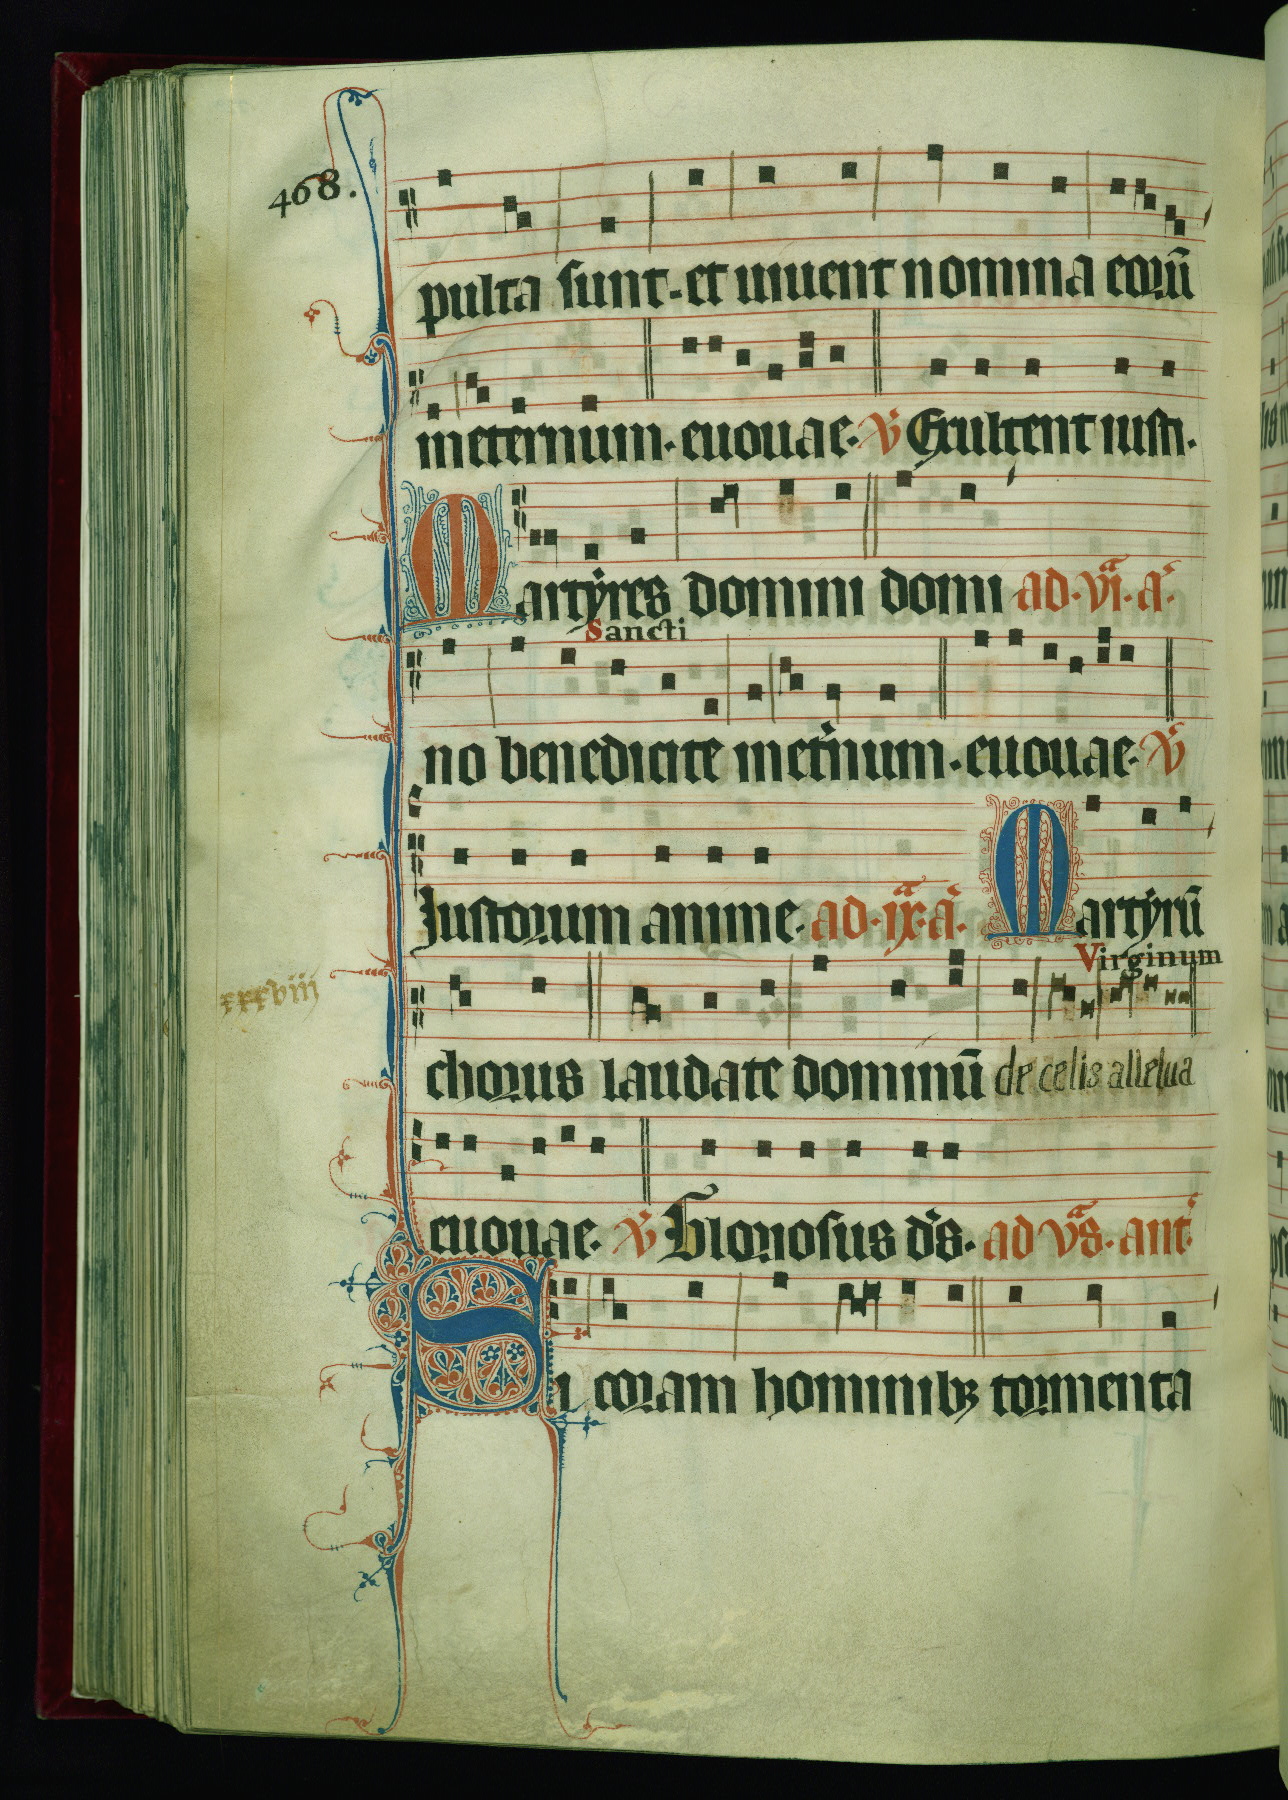 468.
pulta sunt. et uiuent nomina eorū
in eternum. euouae. ℣ Exultent iusti.
Martyres domini domi ad. vi.ͣ a.
Sancti
no benedicite in et̉num. euouae. ℣
Iustorum anime. ad. ix.ͣ a. Martyrū
Virginum
xxxviii
chorus laudate dominū de celis allelua
euouae. ℣ Gloriosus d̉s. ad vͣs. ant̉
Si coram hominibꝫ tormenta